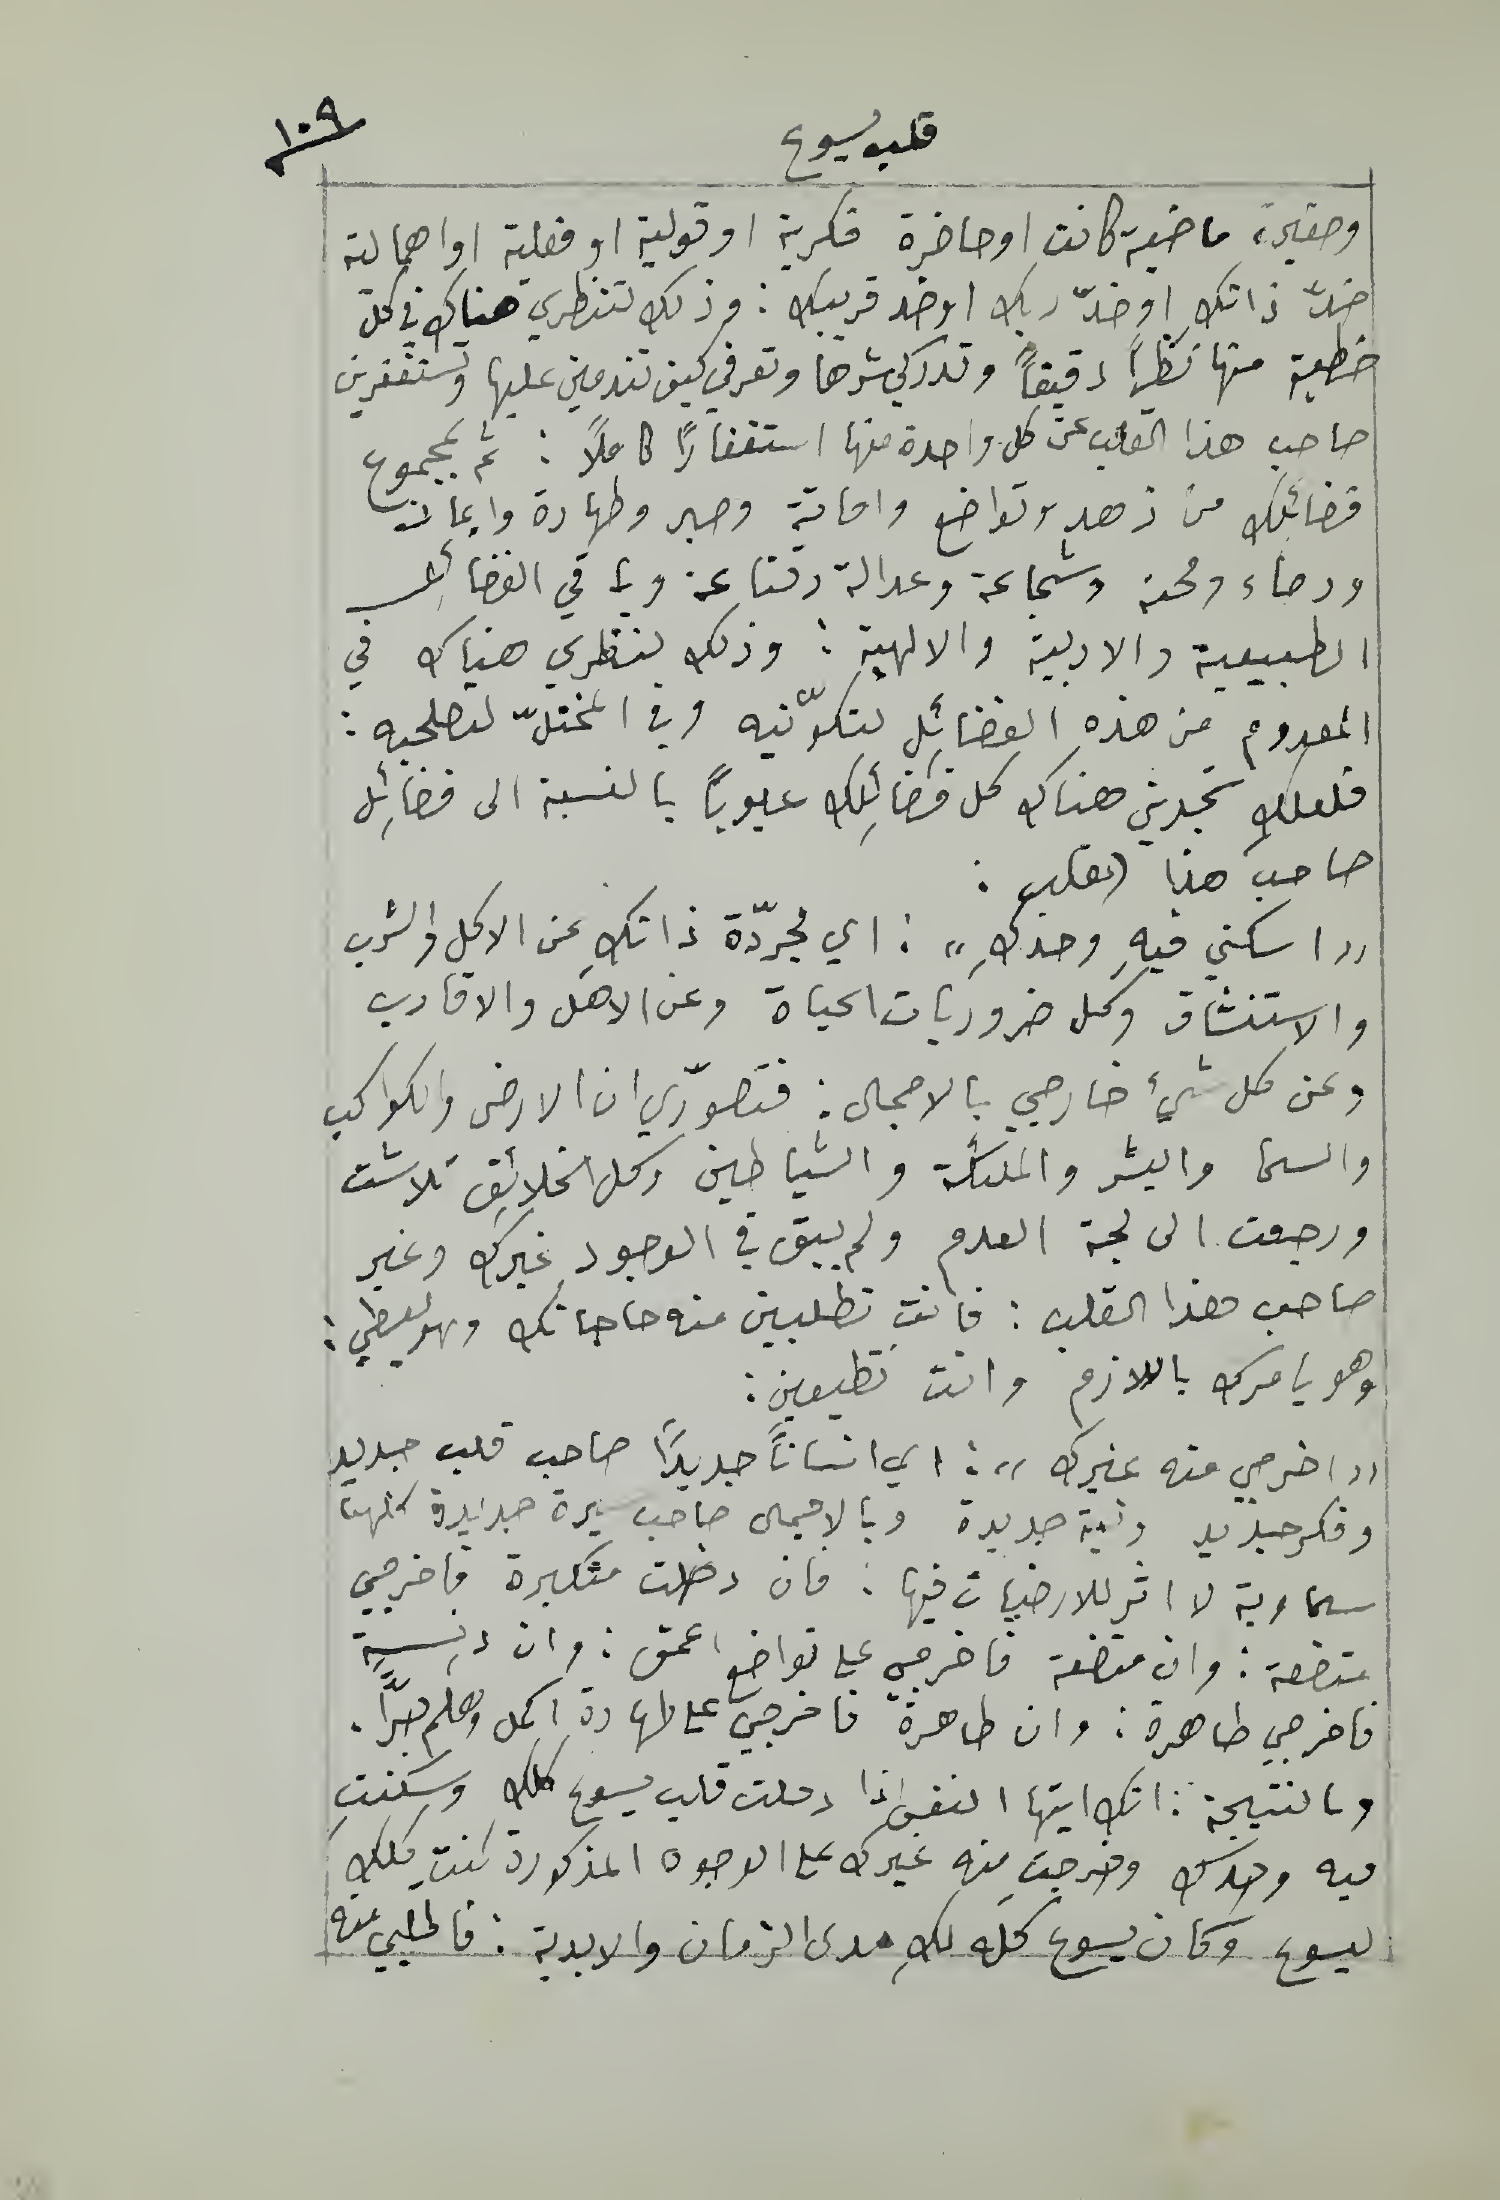 ١٠٩
قلب يسوع
وصغيرة، ماضية كانت او حاضرة فكرية او قولية او فعلية او اهمالية
ضدّ ذاتكِ او ضدّ ربكِ او ضد قريبكِ : وذلك لتنظري هناك في كل
خطية منها نظراً دقيقاً وتدركي شرها وتعرفي كيف تندمين عليها وتستغفرين
صاحب هذا القلب عن كل واحدة منها استغفاراً كاملاً : ثم بمجموع
فضائلك من زهد وتواضع وامانة وصبر وطهارة وايمان
ورجاء ومحبة وشجاعة وعدالة وقناعة وباقي الفضائل
الطبيعية والادبية والالهية : وذلك لتنظري هناك في
المعدوم من هذه الفضائل لتكوّنيه وفي المختلّ لتصلحيه :
فلعلكِ تجدين هناك كل فضائلكِ عيوباً بالنسبة الى فضائل
صاحب هذا القلب :
"اسكني فيهِ وحدكِ" : اي مجرّدة ذاتكِ عن الاكل والشرب
والاستنشاق وكل ضروريات الحياة وعن الاهل والاقارب
وعن كل شيء خارجي بالاجمال : فتصوّري ان الارض والكواكب
والسما والبشر والملئكة والشياطين وكل الخلائق تلاشت
ورجعت الى لجة العدم ولم يبق في الوجود غيركِ وغير
صاحب هذا القلب : فانتِ تطلبين منه حاجاتك وهو يعطي :
وهو يامرك باللازم وانت تطيعين :
"اخرجي منه غيرك" : اي انساناً جديداً صاحب قلب جديد
وفكر جديد ونية جديدة وبالاجمال صاحب سيرة جديدة كلها
سماوية لا اثر للارضيات فيها : فان دخلت متكبرة فاخرجي
متضعة : وان متضعة فاخرجي على تواضع اعمق : وان دنسة
فاخرجي طاهرة : وان طاهرة فاخرجي على طهارة اكمل وهلم جرّاً.
وبالنتيجة : انك ايتها النفس اذا دخلت قلب يسوع كلك وسكنتِ
فيه وحدك وخرجتِ منه غيرك على الوجوه المذكورة كنتِ كلكِ
ليسوع وكان يسوع كله لكِ مدى الزمان والابدية : فاطلبي منه